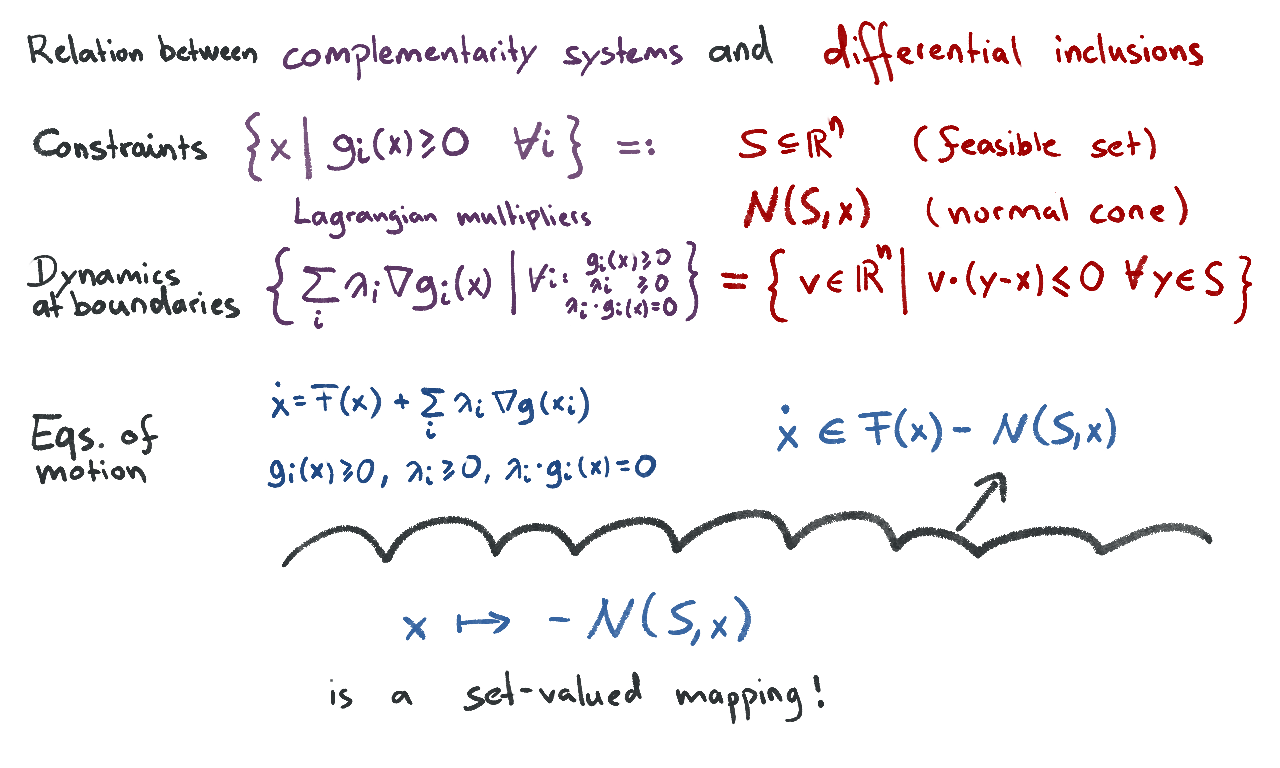 Relation between complementarity systems and differential inclusions
Constraints {x | gᵢ(x)⩾0 ∀i} =: S ⊆ ℝⁿ (feasible set)
Lagrangian multipliers N(S,x) (normal cone)
Dynamics at boundaries { ∑ᵢ λᵢ∇gᵢ(x) | ∀i: gᵢ(x)⩾0 λᵢ ⩾0 λᵢ·gᵢ(x)=0 } = { v∈ℝⁿ | v·(y-x)⩽0 ∀y∈S }
Eqs. of motion
ẋ = F(x) + ∑ᵢ λᵢ ∇g(xᵢ)
gᵢ(x)⩾0, λᵢ⩾0, λᵢ·gᵢ(x)=0
ẋ ∈ F(x) - N(S,x)
x ↦ - N(S,x)
is a set-valued mapping!